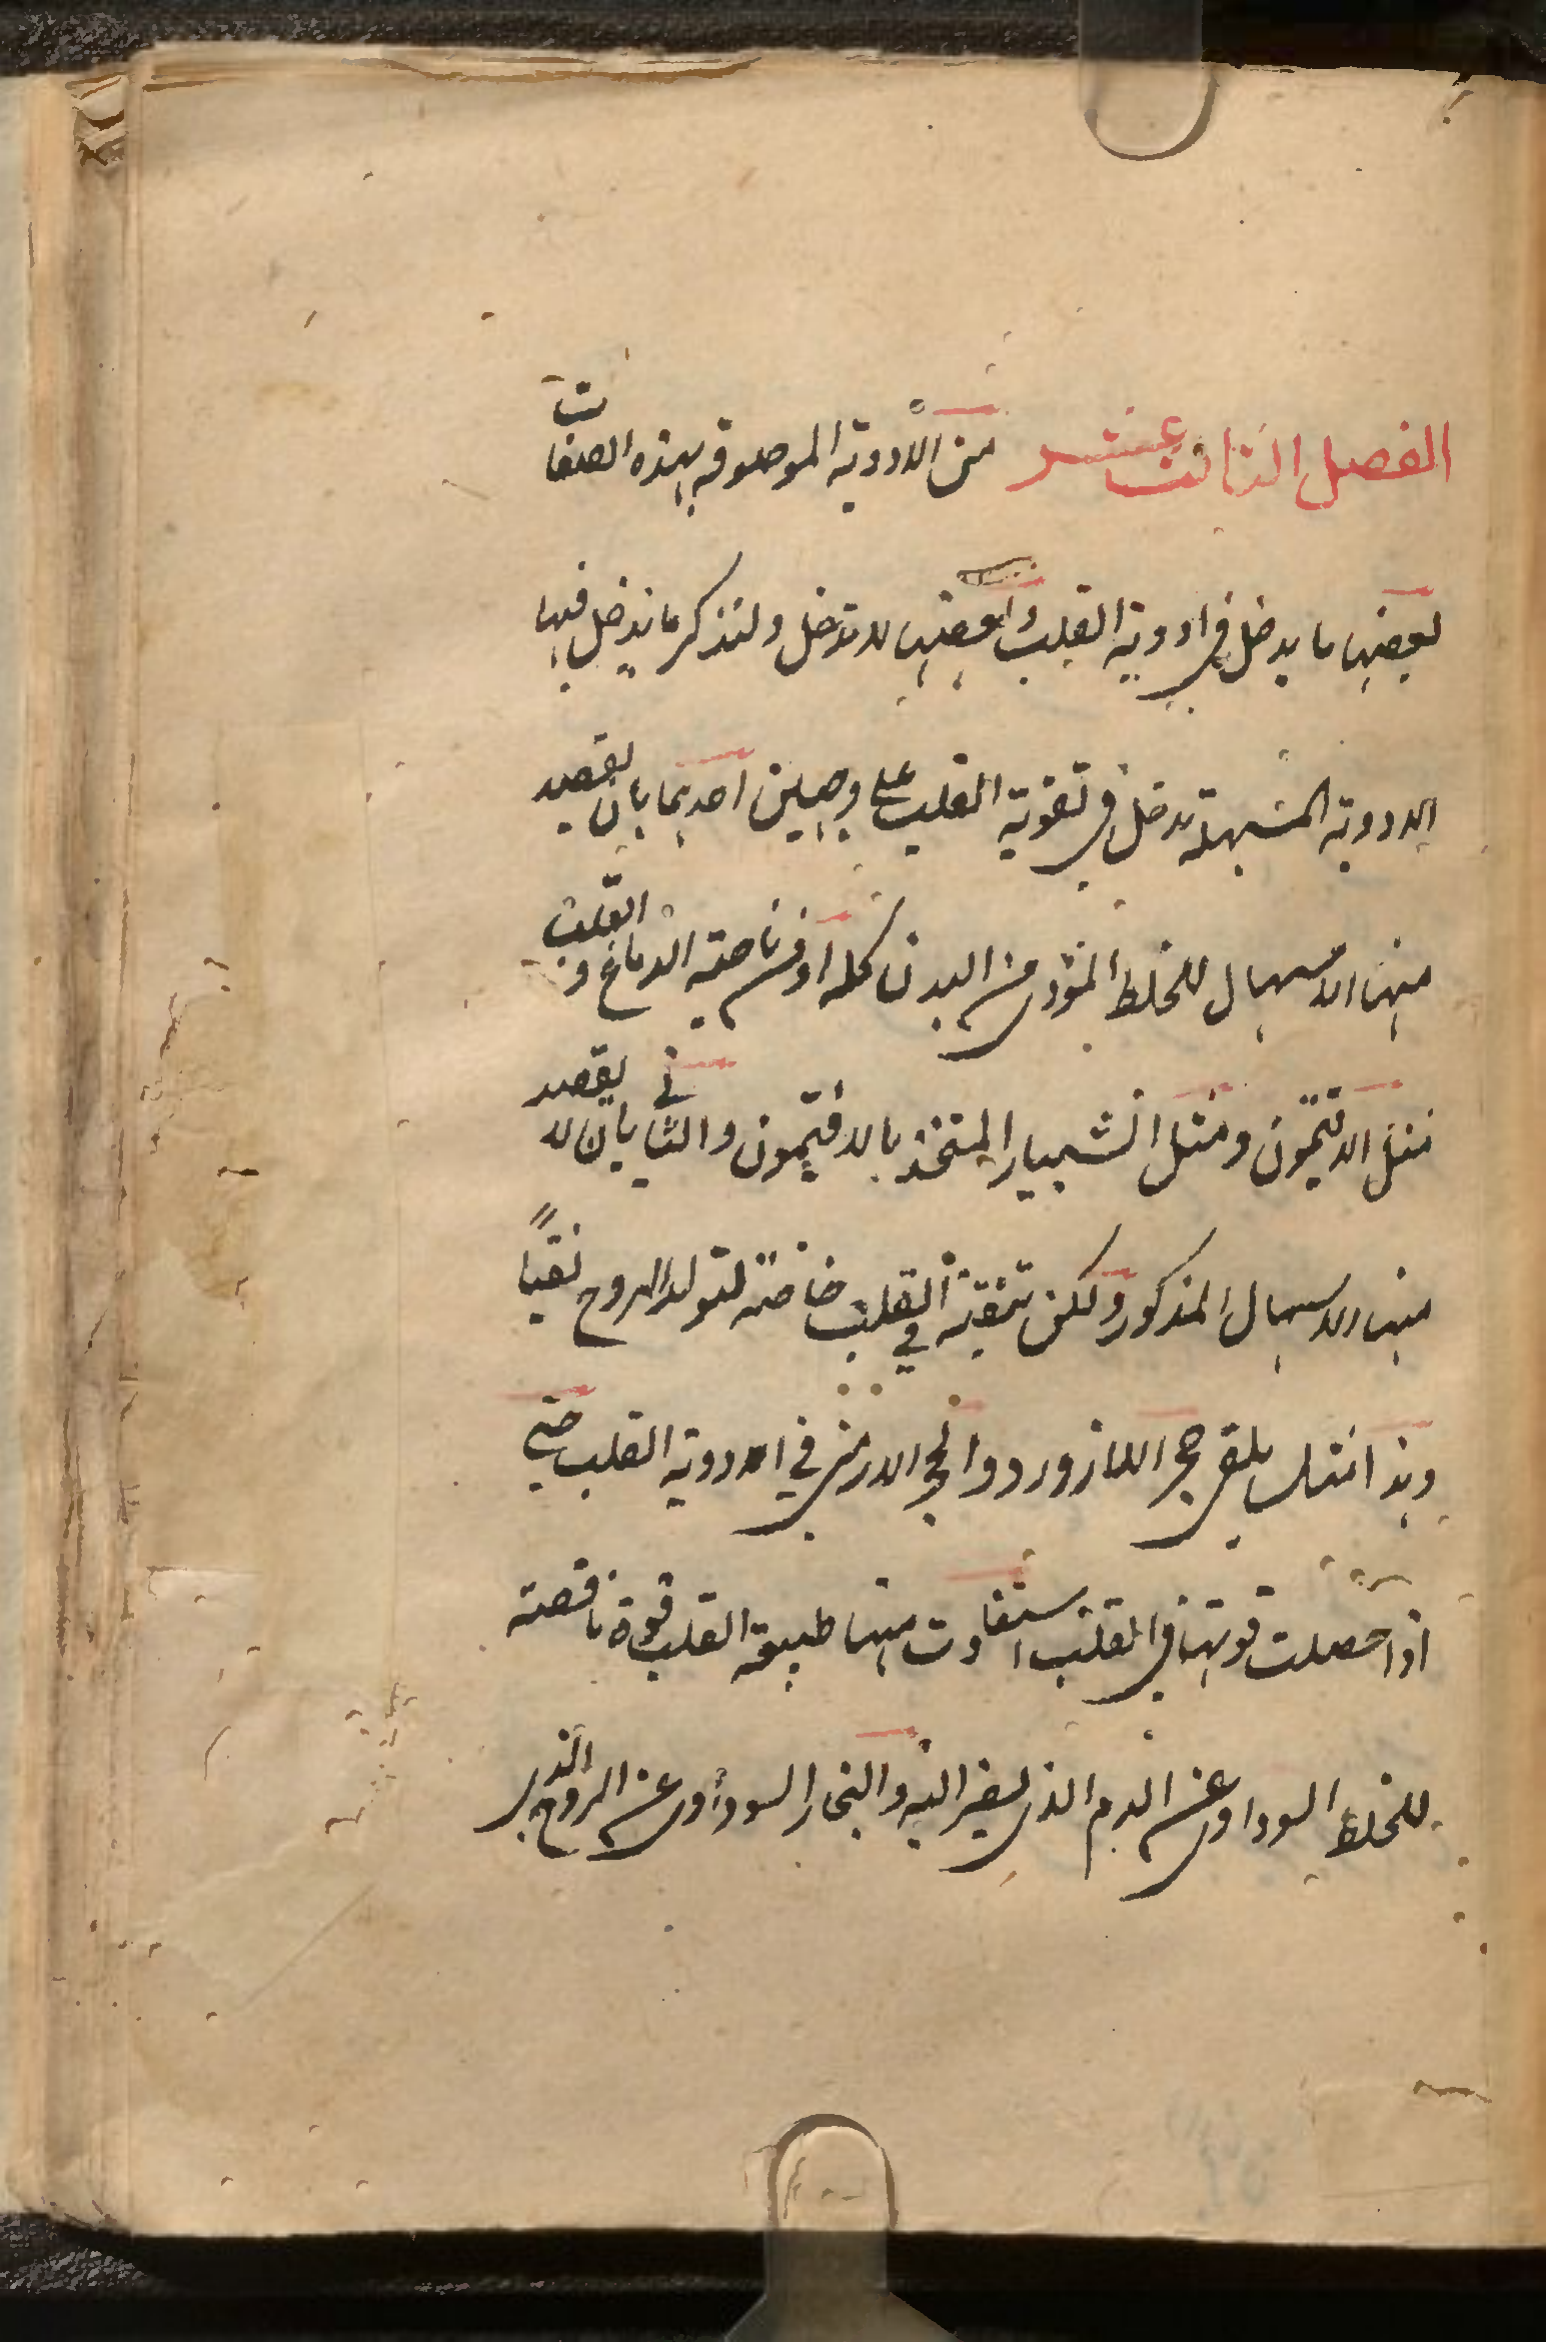 الفصل الثالث عشر من الأدوية الموصوفة بهذه الصفات
بعضها ما يدخل في ادوية القلب وبعضها لا تدخل ولنذكر ما يدخل فيها
الادوية المسهلة تدخل في تقوية القلب على وجهين احدهما بان يقصد
منها الاسهال للخلط المؤذى من البدن كله او من ناحية الدماغ و القلب
مثل الافتيمون ومثل الشبيار المتخذ بالافتيمون والثانى بان لا يقصد
منها الاسهال المذكور ولكن تنقية فى القلب خاصة لتولد الروح نقيا
وهذا مثل يلقى حجر اللازورد والحجر الارمنى في الادوية القلب حتى
اذا حصلت قوتها فى القلب استفادت منها طبيعة القلب قوة نافضة
للخلط السوداوى عن الدم الذى يصير اليه والبخار السوداوى عن الروح الذى